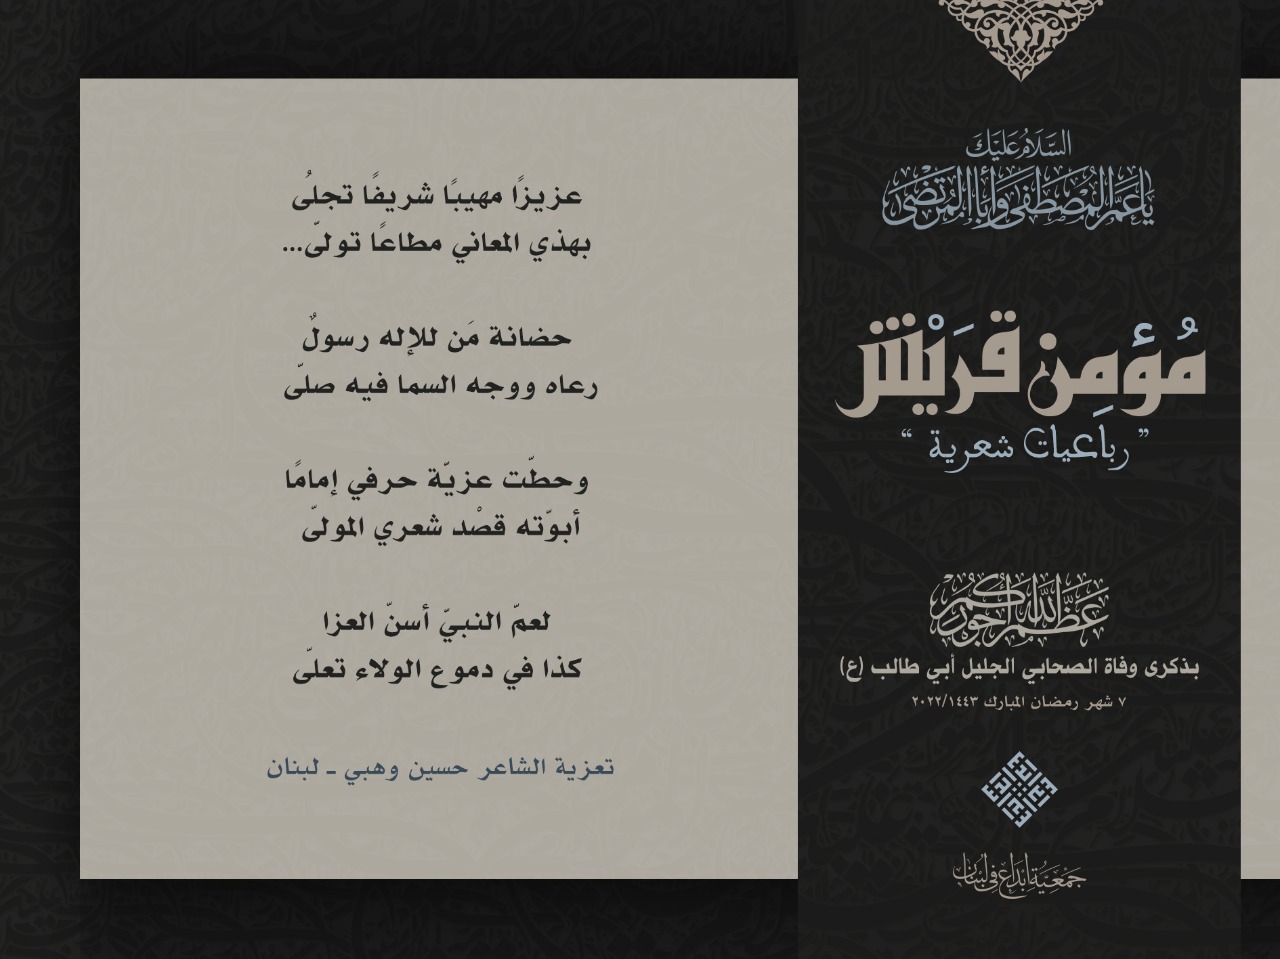 السَّلَامُ عَلَيْكَ
يَا عَمَّ المُصْطَفَى وَأَبَا المُرْتَضَى
مُؤمِن قَرَيْش
” رباعيات شعرية “
عَظَّمَ اللهُ أجوركم
بذكرى وفاة الصحابي الجليل أبي طالب (ع)
٧ شهر رمضان المبارك ٢٠٢٢/١٤٤٣
إبداع
جمعية إبداع في لبنان
عزيزًا مهيبًا شريفًا تجلُى
بهذي المعاني مطاعًا تولّى...
حضانة مَن للإله رسولٌ
رعاه ووجه السما فيه صلّى
وحطّت عزيّة حرفي إمامًا
أبوّته قصْد شعري المولّى
لعمّ النبيّ أسنّ العزا
كذا في دموع الولاء تعلّى
تعزية الشاعر حسين وهبي ـ لبنان